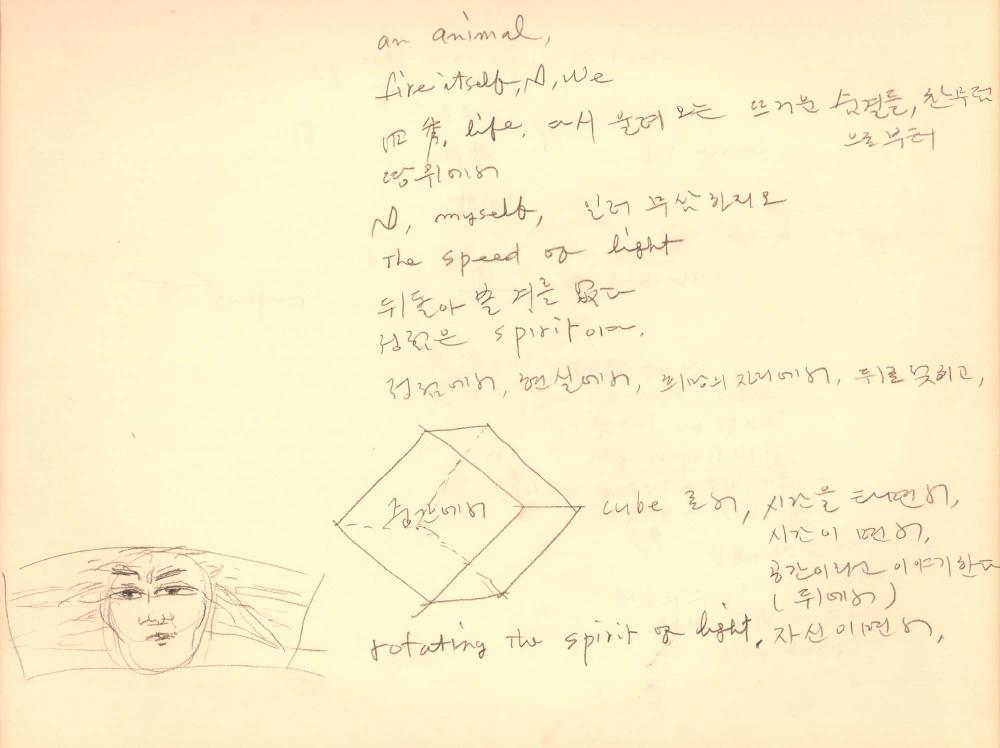 an animal,
fire itself, 나, we
life, 다시 불려 오는 뜨거운 숨결들,
으로부터
땅위에서
나, myself, 일러 무삼하리오
The speed of light
뒤돌아 볼 겨를 없다
정점은 spirit이다.
정점에서, 현실에서, 희망의 자리에서, 뒤로 못하고,
중간에서
cube 로서, 시간을 타면서,
시간이 면서,
공간이라고 이야기한다
(뒤에서)
rotating the spirit of light, 자신이면서,